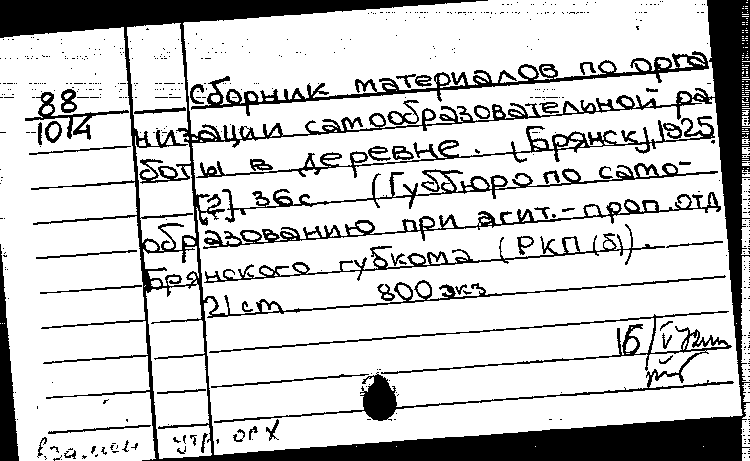 88
1014
Сборник материалов по орга-
низации самообразовательной ра-
боты в деревне. [Брянск], 1925.
[2], 36 с. (Губбюро по само-
образованию при агит.-проп. отд
Брянского губкома (РКП(б)).
21 cm. 800 экз
16/V 72
взамен утр. орх